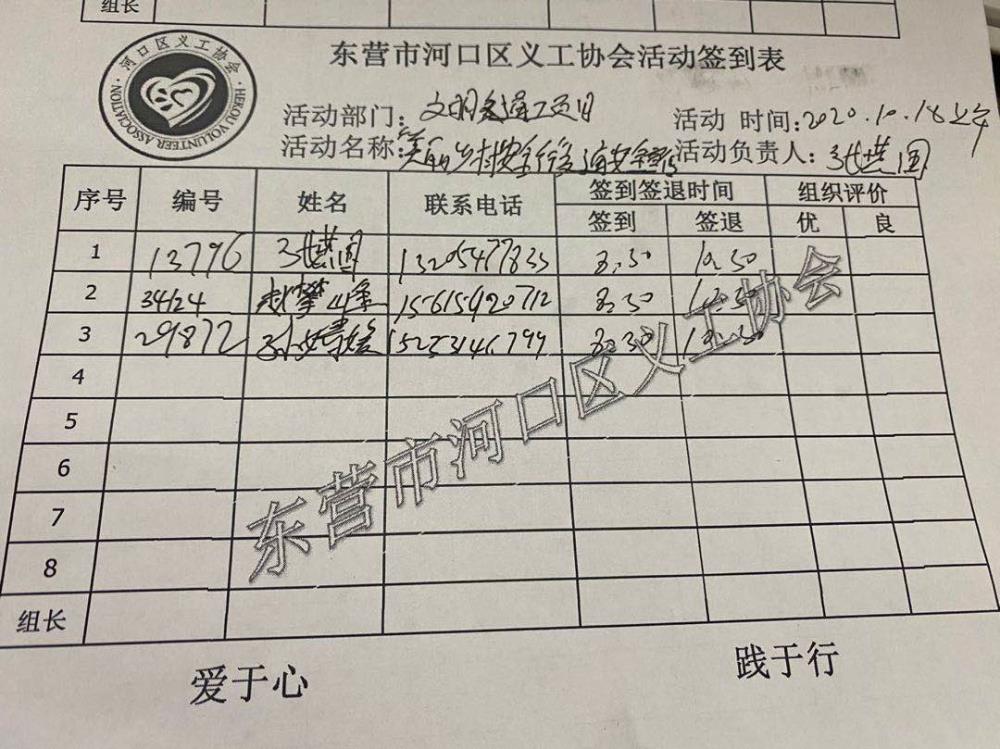 组长
河口区义工协会
HEKOU VOLUNTEER ASSOCIATION
东营市河口区义工协会活动签到表
活动部门: 文明交通工员日
活动 时间:2020.10.18上午
活动名称: 美丽乡村安全行交通安全
活动负责人:
序号 编号 姓名 联系电话 签到签退时间 组织评价
签到 签退 优 良
1 13796 13205477833 8.50 10.50
2 34124 赵攀峰 15615920712 8.50
3 29872 15253146799 8:30
4
5
6
7
8
组长
东营市河口区义工协会
爱于心 践于行